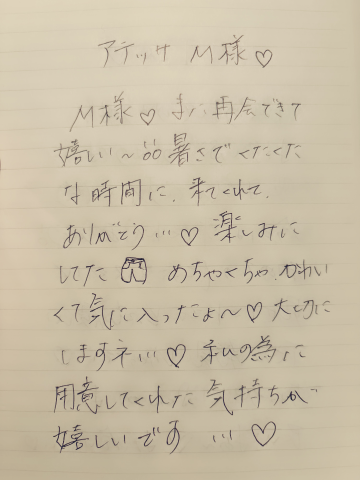 アテッサ M様♡
M様♡また再会できて
嬉しい～暑さでくたくた
な時間に、来てくれて、
ありがとう…♡楽しみに
してた めちゃくちゃ、かわい
くて気に入ったよ～♡大切に
しますネ…♡私の為に
用意してくれた気持ちが
嬉しいです…♡